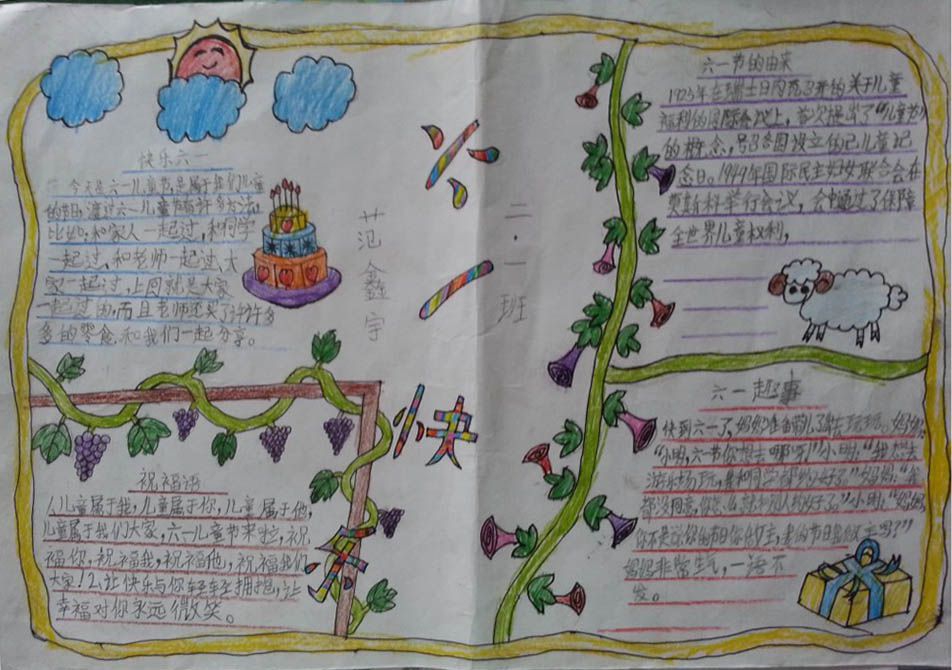 快乐六一
今天是六一儿童节,是属于我们儿童
的节日,渡过六一儿童节有许多方法,
比如:和家人一起过,和同学
一起过、和老师一起过、大
家一起过,上周就是大家
一起过的,而且老师还买了许许多
多的零食,和我们一起分享。
祝福语
1、儿童属于我,儿童属于你,儿童属于他,
儿童属于我们大家,六一儿童节来啦,祝
福你,祝福我,祝福他,祝福我们
大家!2、让快乐与你轻轻拥抱,让
幸福对你永远微笑。
六一快乐
范鑫宇
二·一班
六一节的由来
1925年在瑞士日内瓦召开的关于儿童
福利的国际会议上,首次提出了“儿童节”
的概念,号召各国设立自己儿童纪
念日。1949年国际民主妇女联合会在
莫斯科举行会议,会中通过了保障
全世界儿童权利,
六一趣事
快到六一了,妈妈准备带儿子去玩玩。妈妈:
“小明,六一节你想去哪呀!”小明:“我想去
游乐场玩,是和同学都约好了”妈妈:“我
都没同意,你怎么就和别人约好了。”小明:“妈妈,
你不是说你的节日你做主,我的节日我做主吗?”
妈妈非常生气,一语不
发。